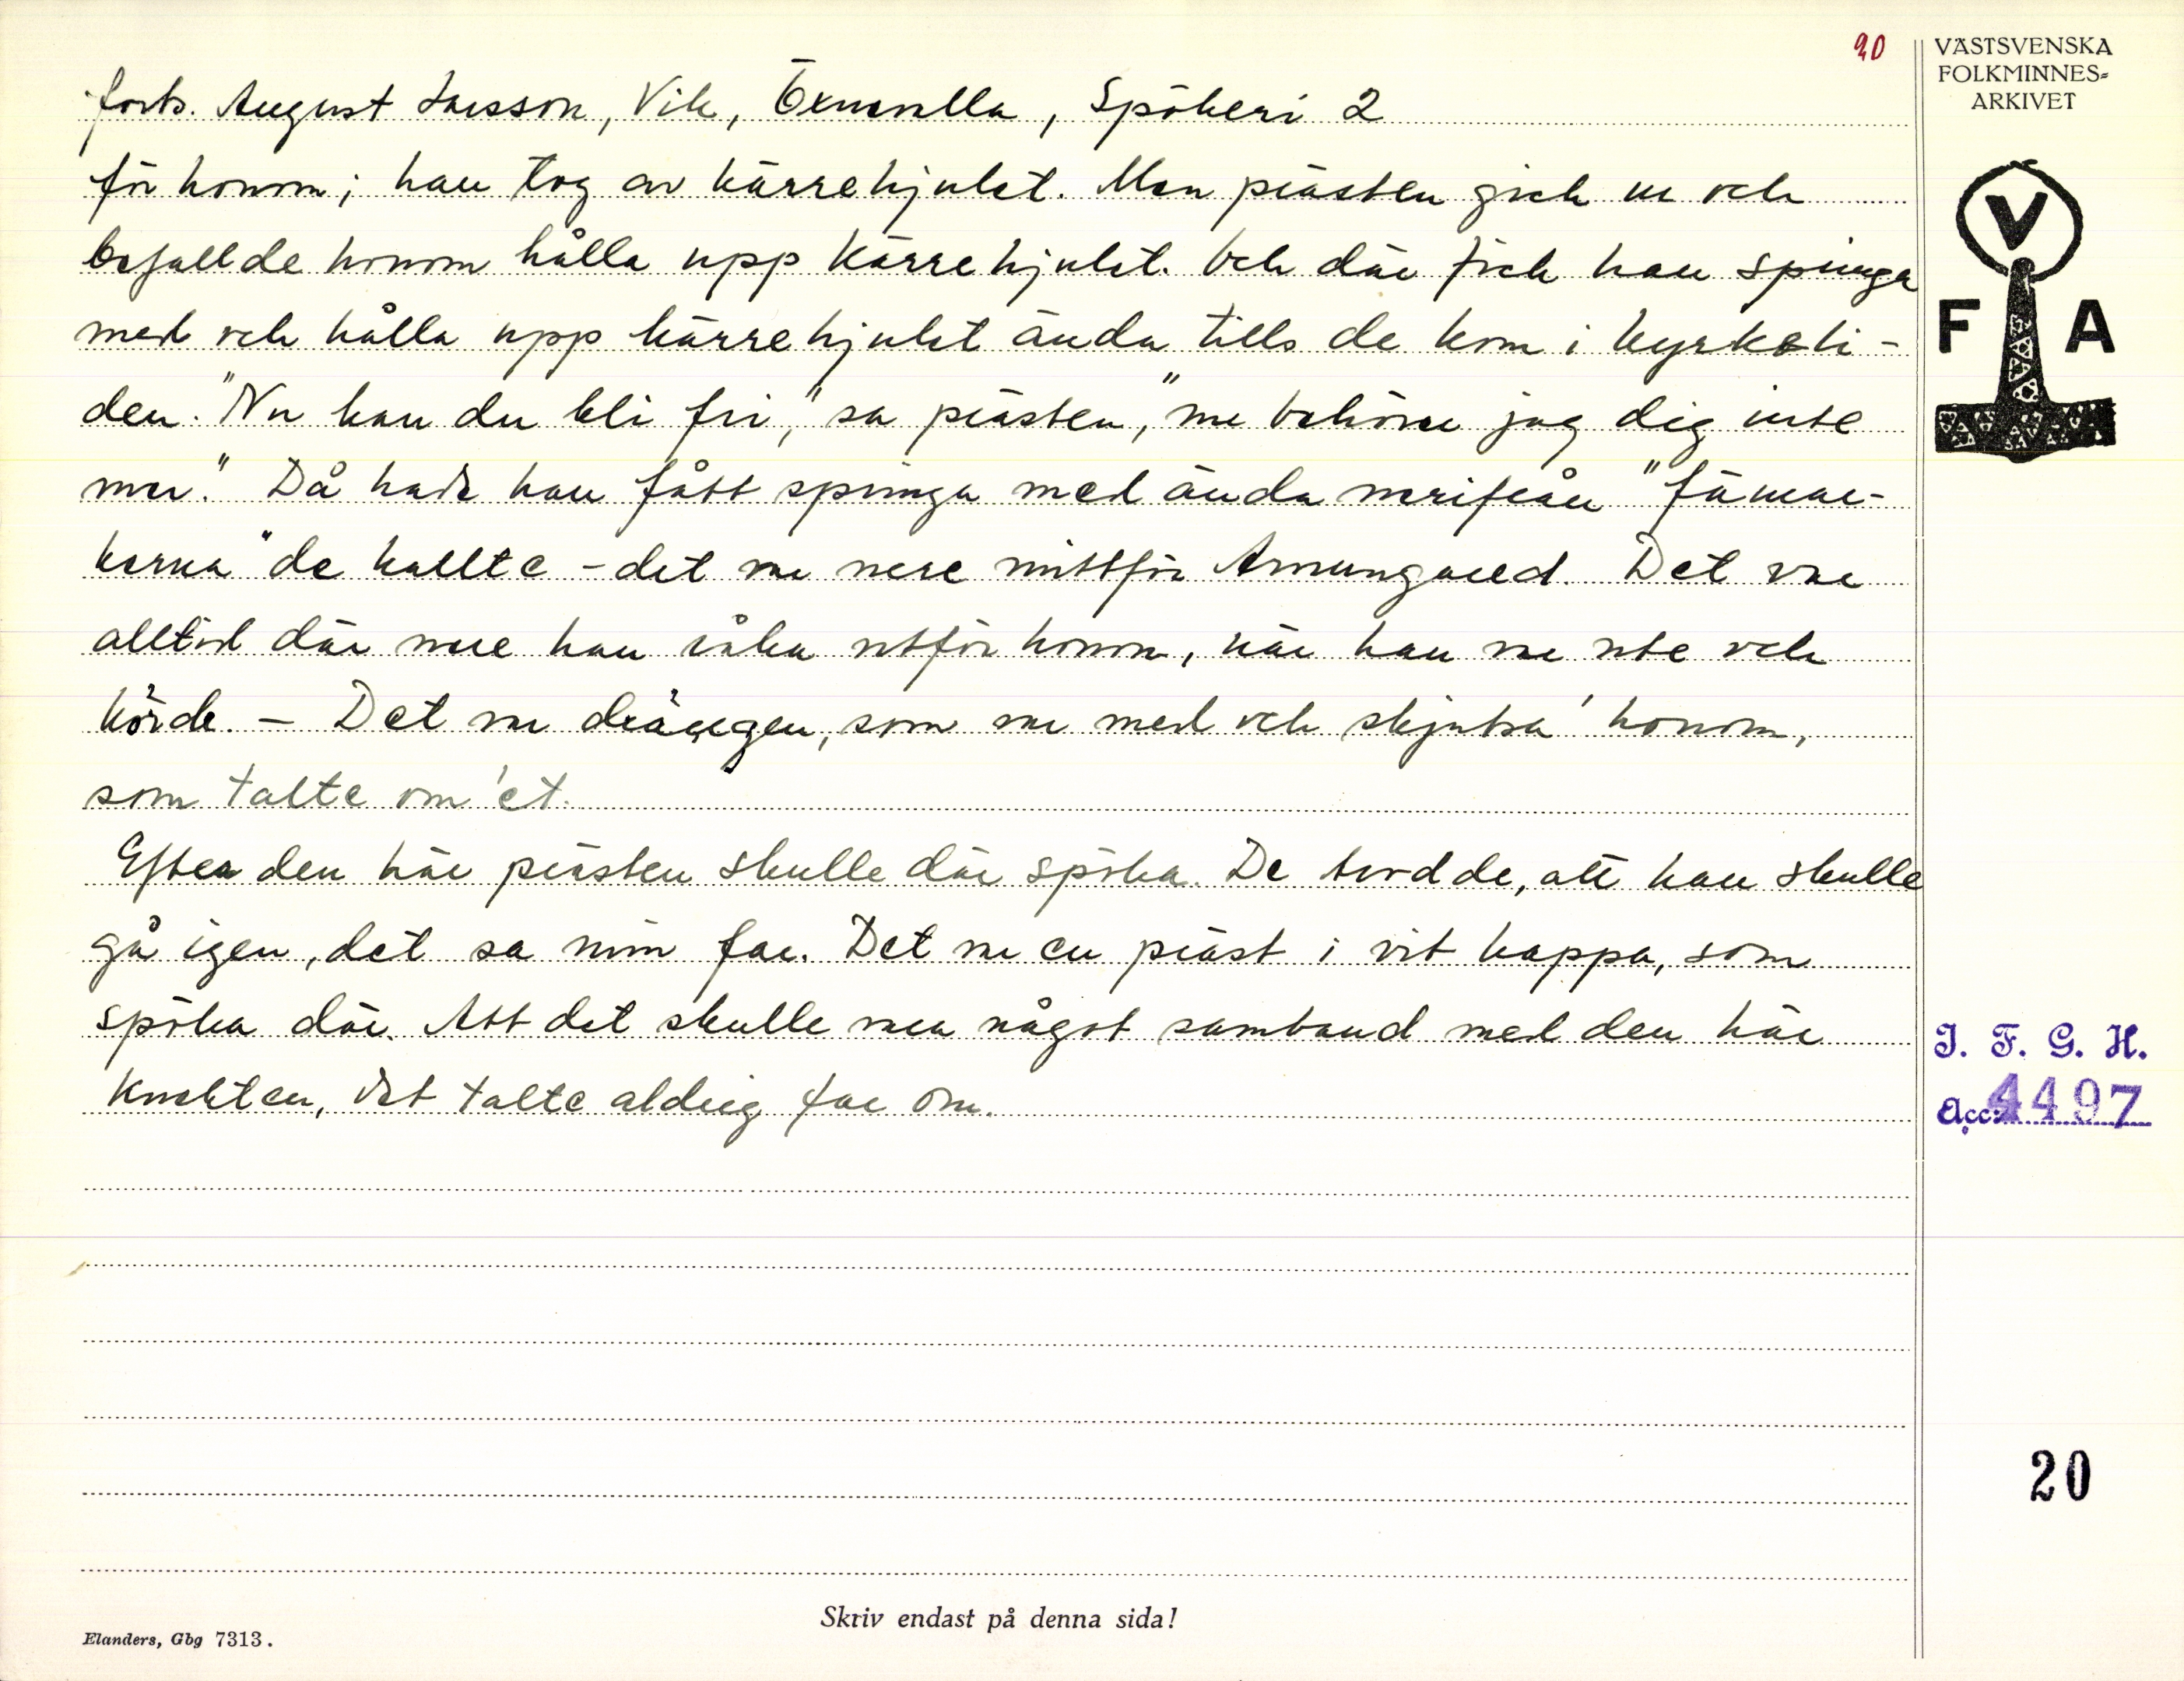 20
VÄSTSVENSKA
FOLKMINNES-
ARKIVET
forts. August Larsson, Vik, Öxnevalla, Spökeri 2
för honom; han tog av kärrehjulet. Men prästen gick ur och
befallde honom hålla upp kärrehjulet. Och där fick han springa
med och hålla upp kärrehjulet ända tills de kom i kyrkeli-
den. "Nu kan du bli fri," sa prästen, "nu behöver jag dig inte
mer." Då hade han fått springa med ända nerifrån "fämar-
kerna" de kallte - det var nere mittför Amungared. Det var
alltid där nere han råka utför honom, när han var ute och
körde. - Det var drängen, som var med och skjutsa' honom,
som talte om 'et.
Efter den här prästen skulle där spöka. De trodde, att han skulle
gå igen, det sa min far. Det var en präst i vit kappa, som
spöka där. Att det skulle vara något samband med den här
knekten, det talte aldrig far om.
V
F A
I. F. G. H.
Acc: 4497
20
Skriv endast på denna sida!
Elanders, Gbg 7313.